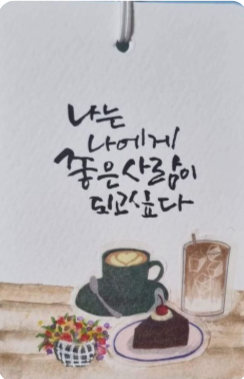 나는
나에게
좋은사람이
되고싶다